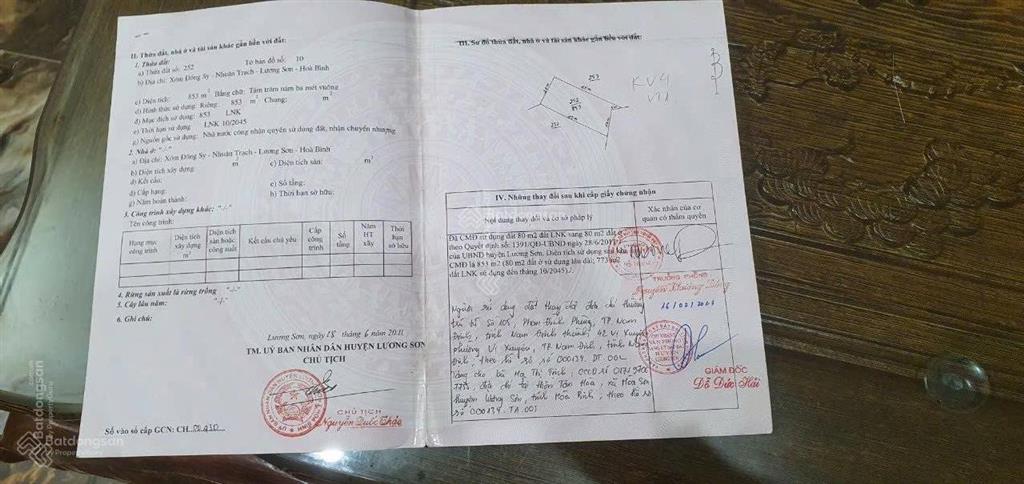 II. Thửa đất, nhà ở và tài sản khác gắn liền với đất:
1. Thửa đất:
a) Thửa đất số: 252 Tờ bản đồ số: 10
b) Địa chỉ: Xóm Đồng Sy - Nhuận Trạch - Lương Sơn - Hoà Bình
c) Diện tích: 853 m² Bằng chữ: Tám trăm năm ba mét vuông
d) Hình thức sử dụng: Riêng: 853 m² Chung: m²
đ) Mục đích sử dụng: 853 LNK
e) Thời hạn sử dụng LNK 10/2045
g) Nguồn gốc sử dụng: Nhà nước công nhận quyền sử dụng đất, nhận chuyển nhượng
2. Nhà ở: "-/-"
a) Địa chỉ: Xóm Đồng Sy - Nhuận Trạch - Lương Sơn - Hoà Bình
b) Diện tích xây dựng m² c) Diện tích sàn: m²
d) Kết cấu:
đ) Cấp hạng: e) Số tầng:
g) Năm hoàn thành: h) Thời hạn sở hữu:
3. Công trình xây dựng khác: "-/-"
Tên công trình:
Hạng mục công trình
Diện tích xây dựng m²
Diện tích sàn hoặc công suất
Kết cấu chủ yếu
Cấp công trình
Số tầng
Năm HT xây
Thời hạn sở hữu
4. Rừng sản xuất là rừng trồng "-/-"
5. Cây lâu năm: "-/-"
6. Ghi chú:
Lương Sơn, ngày 18 tháng 6 năm 2011
TM. UỶ BAN NHÂN DÂN HUYỆN LƯƠNG SƠN
CHỦ TỊCH
CHỦ TỊCH
Nguyễn Quốc
Số vào sổ cấp GCN: CH
III. Sơ đồ thửa đất, nhà ở và tài sản khác gắn liền với đất:
253
252
853
252
KV4
VT1
IV. Những thay đổi sau khi cấp giấy chứng nhận
Nội dung thay đổi và cơ sở pháp lý
Xác nhận của cơ quan có thẩm quyền
Đã CMĐ sử dụng đất 80 m2 đất LNK sang 80 m2 đất ở
theo Quyết định số: 1391/QĐ-UBND ngày 28/6/2011
của UBND huyện Lương Sơn. Diện tích sử dụng sau khi
CMĐ là 853 m2 (80 m2 đất ở sử dụng lâu dài; 773 m2
đất LNK sử dụng đến tháng 10/2045)./.
TRƯỞNG PHÒNG
Nguyễn
Người sử dụng đất thay đổi địa chỉ thường
trú từ số 105, Phan Đình Phùng, TP. Nam
Định, tỉnh Nam Định thành 42 Vị Xuyên,
phường Vị Xuyên, TP. Nam Định, tỉnh Nam
Định, theo hồ sơ số 000134.
cho bà Hà Thị CCCD số
địa chỉ tại thôn Tân Hoà, xã Hoà Sơn,
huyện Lương Sơn, tỉnh Hoà Bình, theo hồ sơ
số 000134.TA.001
GIÁM ĐỐC
Đỗ Đức Hải
Batdongsan
Batdongsan